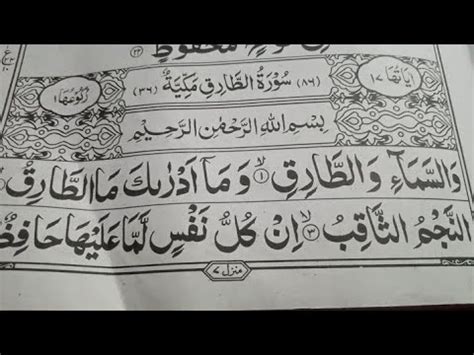 مَّحْفُوْظٍ ٢٢
اٰيَاتُهَا ١٧ (٨٦) سُوْرَةُ الطَّارِقِ مَكِّيَّةٌ (٣٦) رُكُوْعُهَا ١
بِسْمِ اللّٰهِ الرَّحْمٰنِ الرَّحِيْمِ
وَالسَّمَآءِ وَالطَّارِقِ ۙ١ وَمَآ اَدْرٰىكَ مَا الطَّارِقُ ۙ
النَّجْمُ الثَّاقِبُ ۙ٣ اِنْ كُلُّ نَفْسٍ لَّمَّا عَلَيْهَا حَافِظٌ
منزل ٧